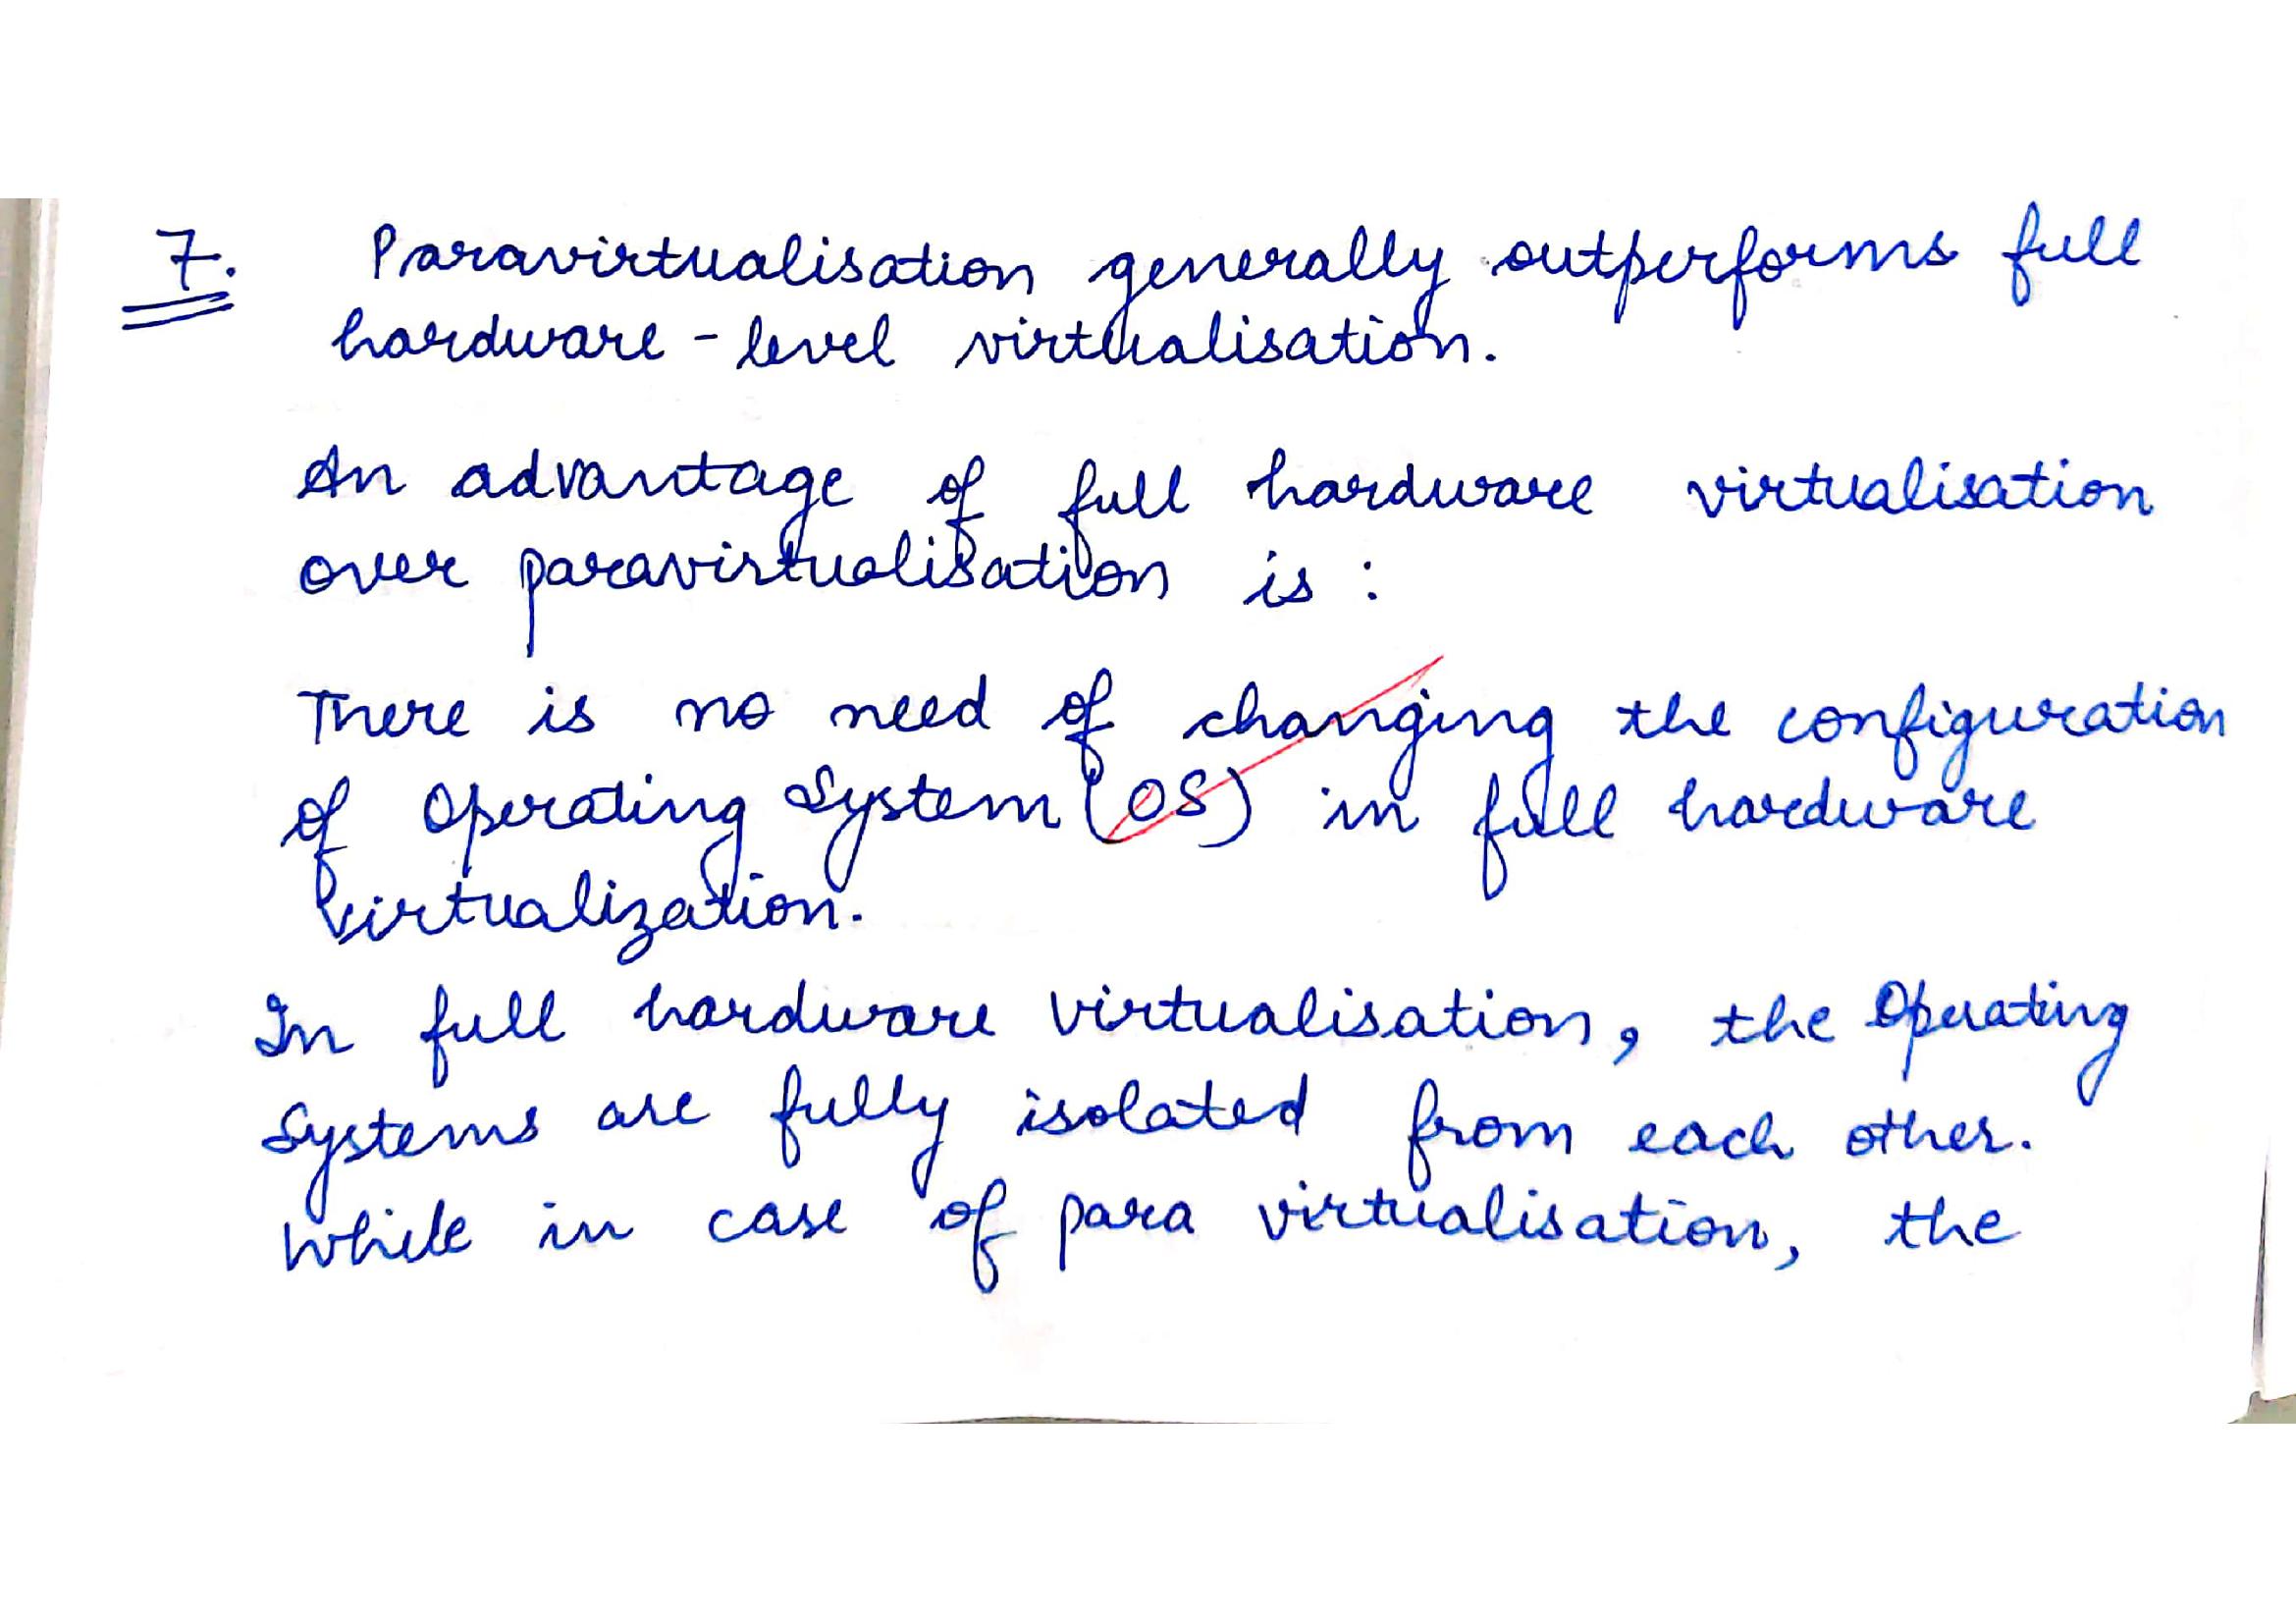 7. Paravirtualisation generally outperforms full
hardware-level virtualisation.
An advantage of full hardware virtualisation
over paravirtualisation is :
There is no need of changing the configuration
of Operating System (OS) in full hardware
virtualization.
In full hardware virtualisation, the Operating
Systems are fully isolated from each other.
While in case of para virtualisation, the